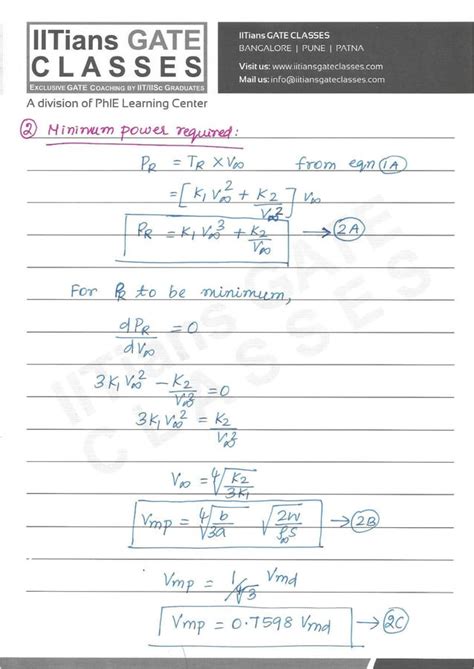 IITians GATE
CLASSES
EXCLUSIVE GATE COACHING BY IIT/IISc GRADUATES
A division of PhIE Learning Center
IITians GATE CLASSES
BANGALORE | PUNE | PATNA
Visit us: www.iitiansgateclasses.com
Mail us: info@iitiansgateclasses.com
② Minimum power required:
P_R = T_R × V∞ from eqn (1A)
= [K₁V∞² + K₂/V∞²] V∞
P_R = K₁V∞³ + K₂/V∞ → (2A)
For P_R to be minimum,
dP_R/dV∞ = 0
3K₁V∞² − K₂/V∞² = 0
3K₁V∞² = K₂/V∞²
V∞ = ⁴√(K₂/3K₁)
Vmp = ⁴√(b/3a) √(2W/ρ∞S) → (2B)
Vmp = 1/⁴√3 Vmd
Vmp = 0.7598 Vmd → (2C)
IITians GATE
CLASSES